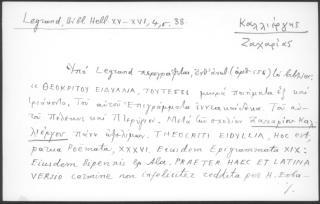 Legrand, Bibl. Hell. XV-XVI, 4, σ. 38.
Καλλιέργης
Ζαχαρίας
Ὑπὸ Legrand περιγράφεται, τὸ βιβλίον:
« ΘΕΟΚΡΙΤΟΥ ΕΙΔΥΛΛΙΑ, ΤΟΥΤΕΣΙ μικρὰ ποιήματα
Τοῦ αὐτοῦ Ἐπιγράμματα ἐννεακαίδεκα. Τοῦ αὐ-
τοῦ Πέλεκυς καὶ Πτερύγιον. Μετὰ σχολίων Ζαχαρίου Καλ-
λιέργου πάνυ ὠφελίμων. THEOCRITI EIDYLLIA, Hoc est,
parua Poëmata, XXXVI. Eiusdem Epigrammata XIX:
Eiusdem bipennis & Ala. PRAETER HAEC ET LATINA
VERSIO carmine non infeliciter reddita per H. Eoba-
./.